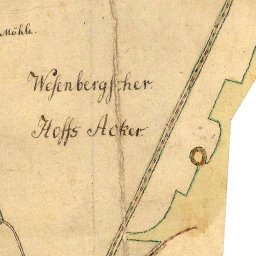 Mühle.
Wesenbergscher
Hoffs Acker